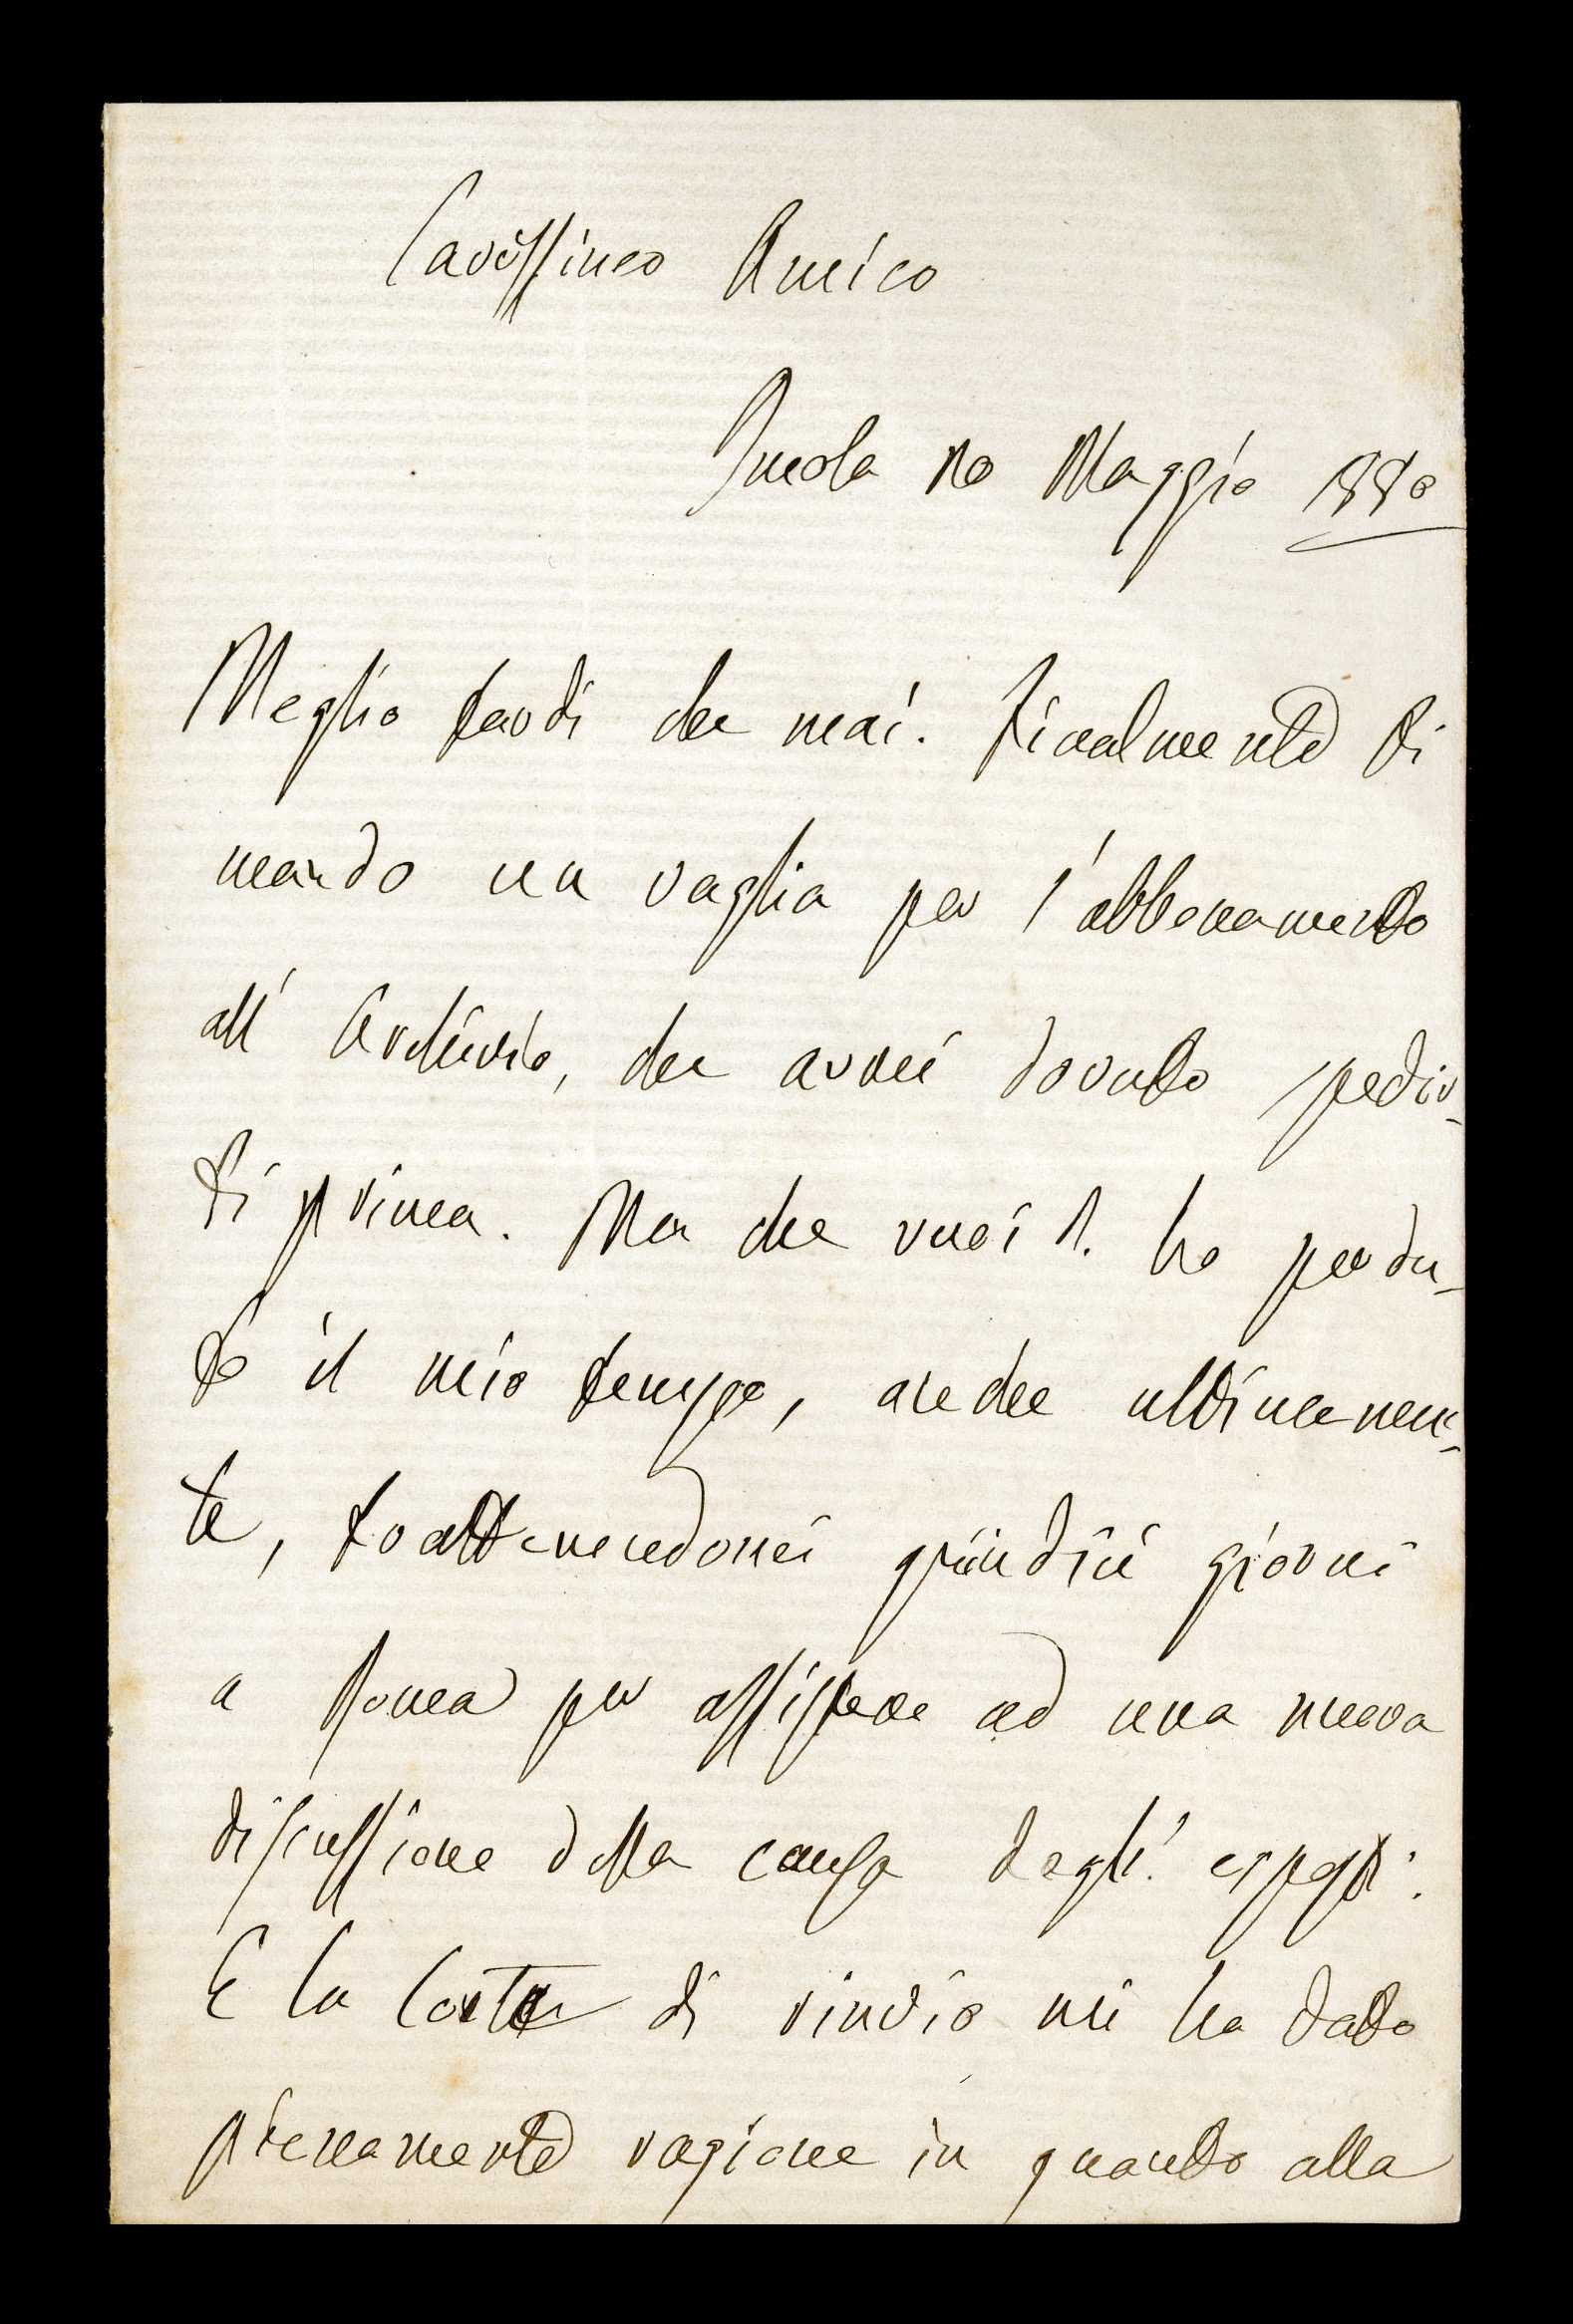 Carissimo Amico
Imola 10 Maggio 1880
Meglio tardi che mai. Finalmente ti
mando un vaglia per l'abbonamento
all' Archivio, che avrei dovuto spedir-
ti prima. Ma che vuoi?. ho perdu-
to il mio tempo, anche ultimamen-
te, trattenendomi quindici giorni
a Roma per assistere ad una nuova
discussione della causa degli esposti.
E la Corte di rinvio mi ha dato
pienamente ragione in quanto alla